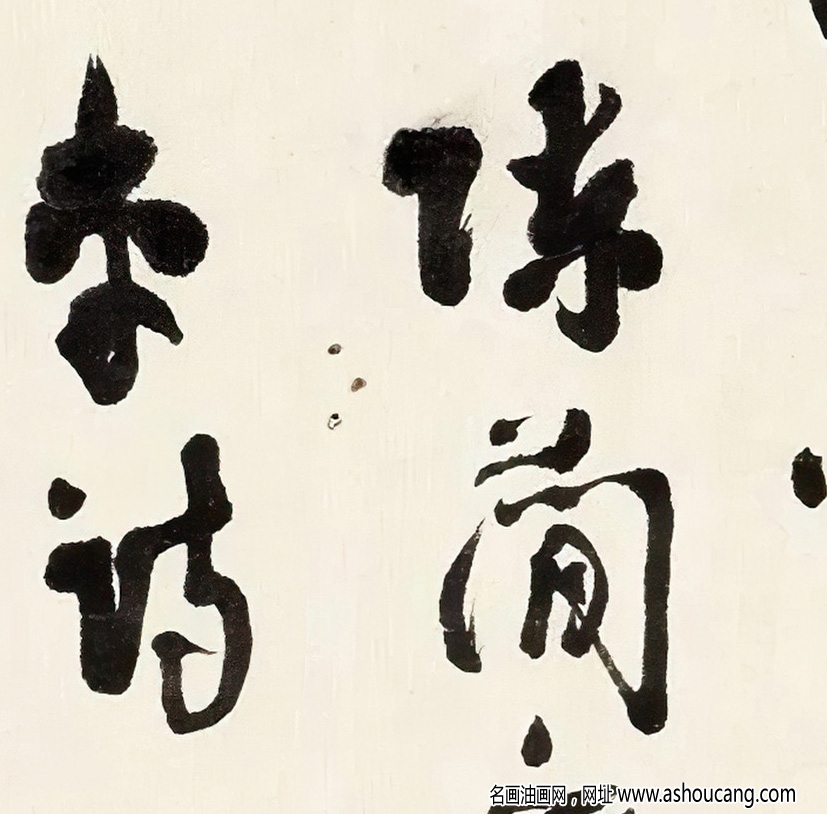 陳簡
李詩
名画油画网，网址 www.ashoucang.com